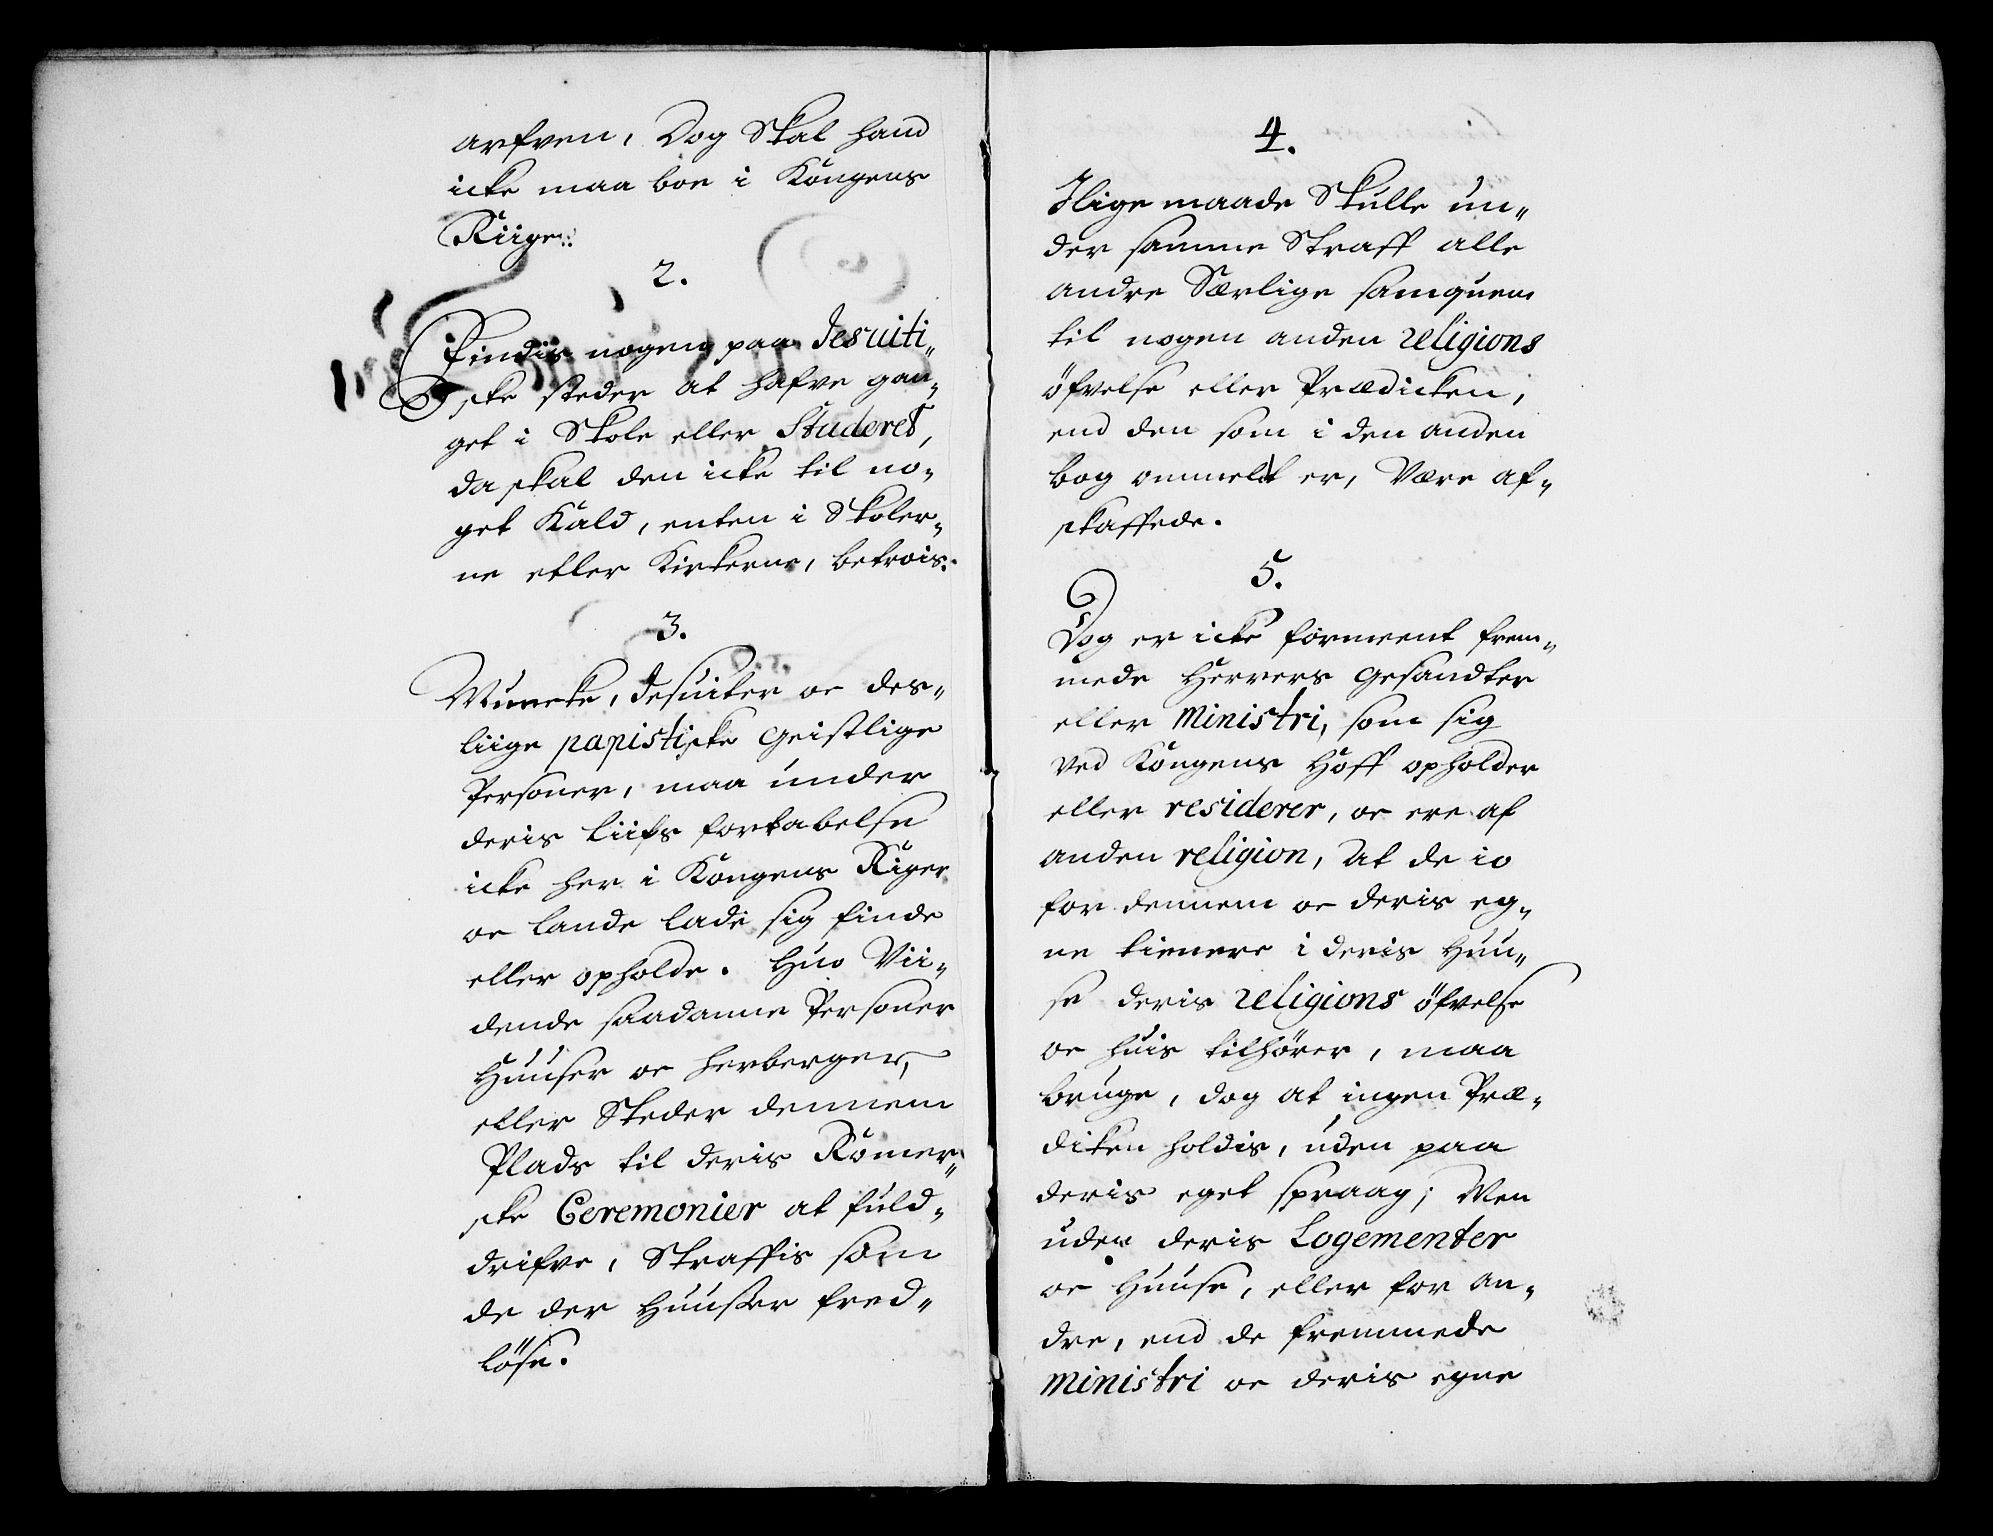 arfven, Dog Skal hand
icke maa boe i Kongens
Riiger.
2.
Findis nogen paa Jesuiti„
ske steder at hafve gan„
get i Skole eller Studeret,
da skal den icke til no„
get Kald, enten i Skoler„
ne eller Kirkerne, betrois.
3.
Muncke, Jesuiter oc des„
liige papistiske Geistlige
Personer, maa under
deris Liifs fortabelse
icke her i Kongens Riger
oc Lande lade sig finde
eller opholde. Huo Vii„
dende saadanne Personer
Huuser oc herberger,
eller Steder dennem
Plads til deris Romer„
ske Ceremonier at fuld„
drifve, Straffis som
de der Huuser fred„
löse.
4.
Jlige maade Skulle un„
der samme Straff alle
andre Særlige samquem
til nogen anden religions
öfvelse eller Prædicken,
end den som i den anden
bog ommelt er, Være af„
skaffede.
5.
Dog er icke forment frem„
mede Herrers Gesandter
eller Ministri, som sig
ved Kongens Hoff opholder
eller residerer, oc ere af
anden religion, At de io
for dennem oc deris eg„
ne tienere i deris Huu„
se deris religions öfvelse
oc huis tilhörer, maa
bruge, dog at ingen Præ„
diken holdis, uden paa
deris eget spraag; Men
uden deris Logementer
oc Huuse, eller for an„
dre, end de fremmede
Ministri oc deris egne